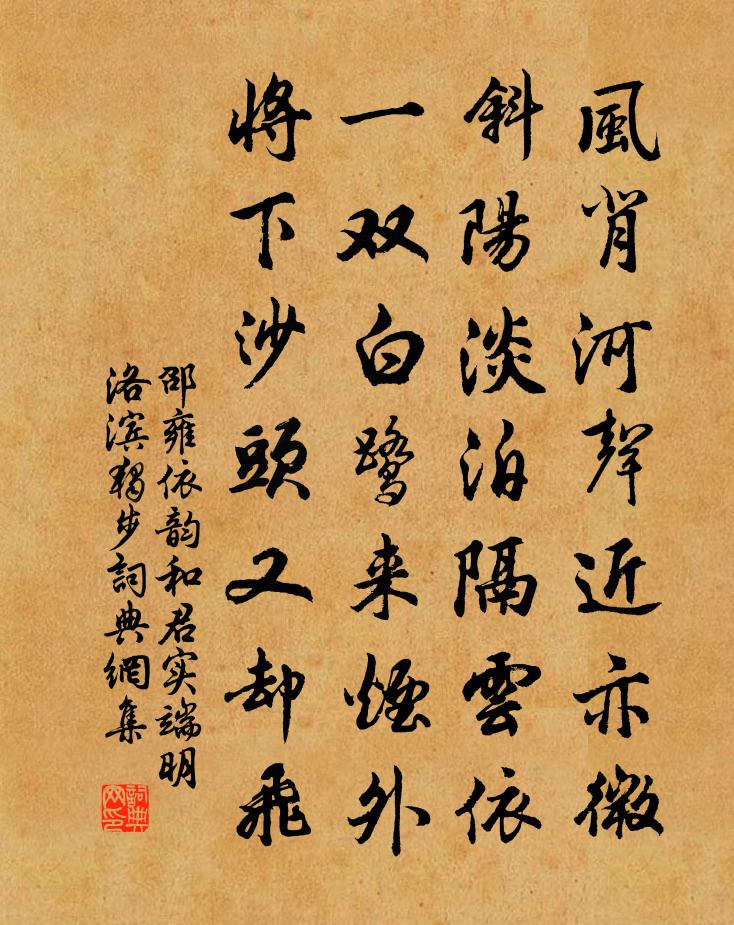 風背河聲近亦微
斜陽淡泊隔雲依
一双白鷺来煙外
将下沙頭又却飛
邵雍依韵和君实端明
洛滨獨步詞典網集
詞典网印